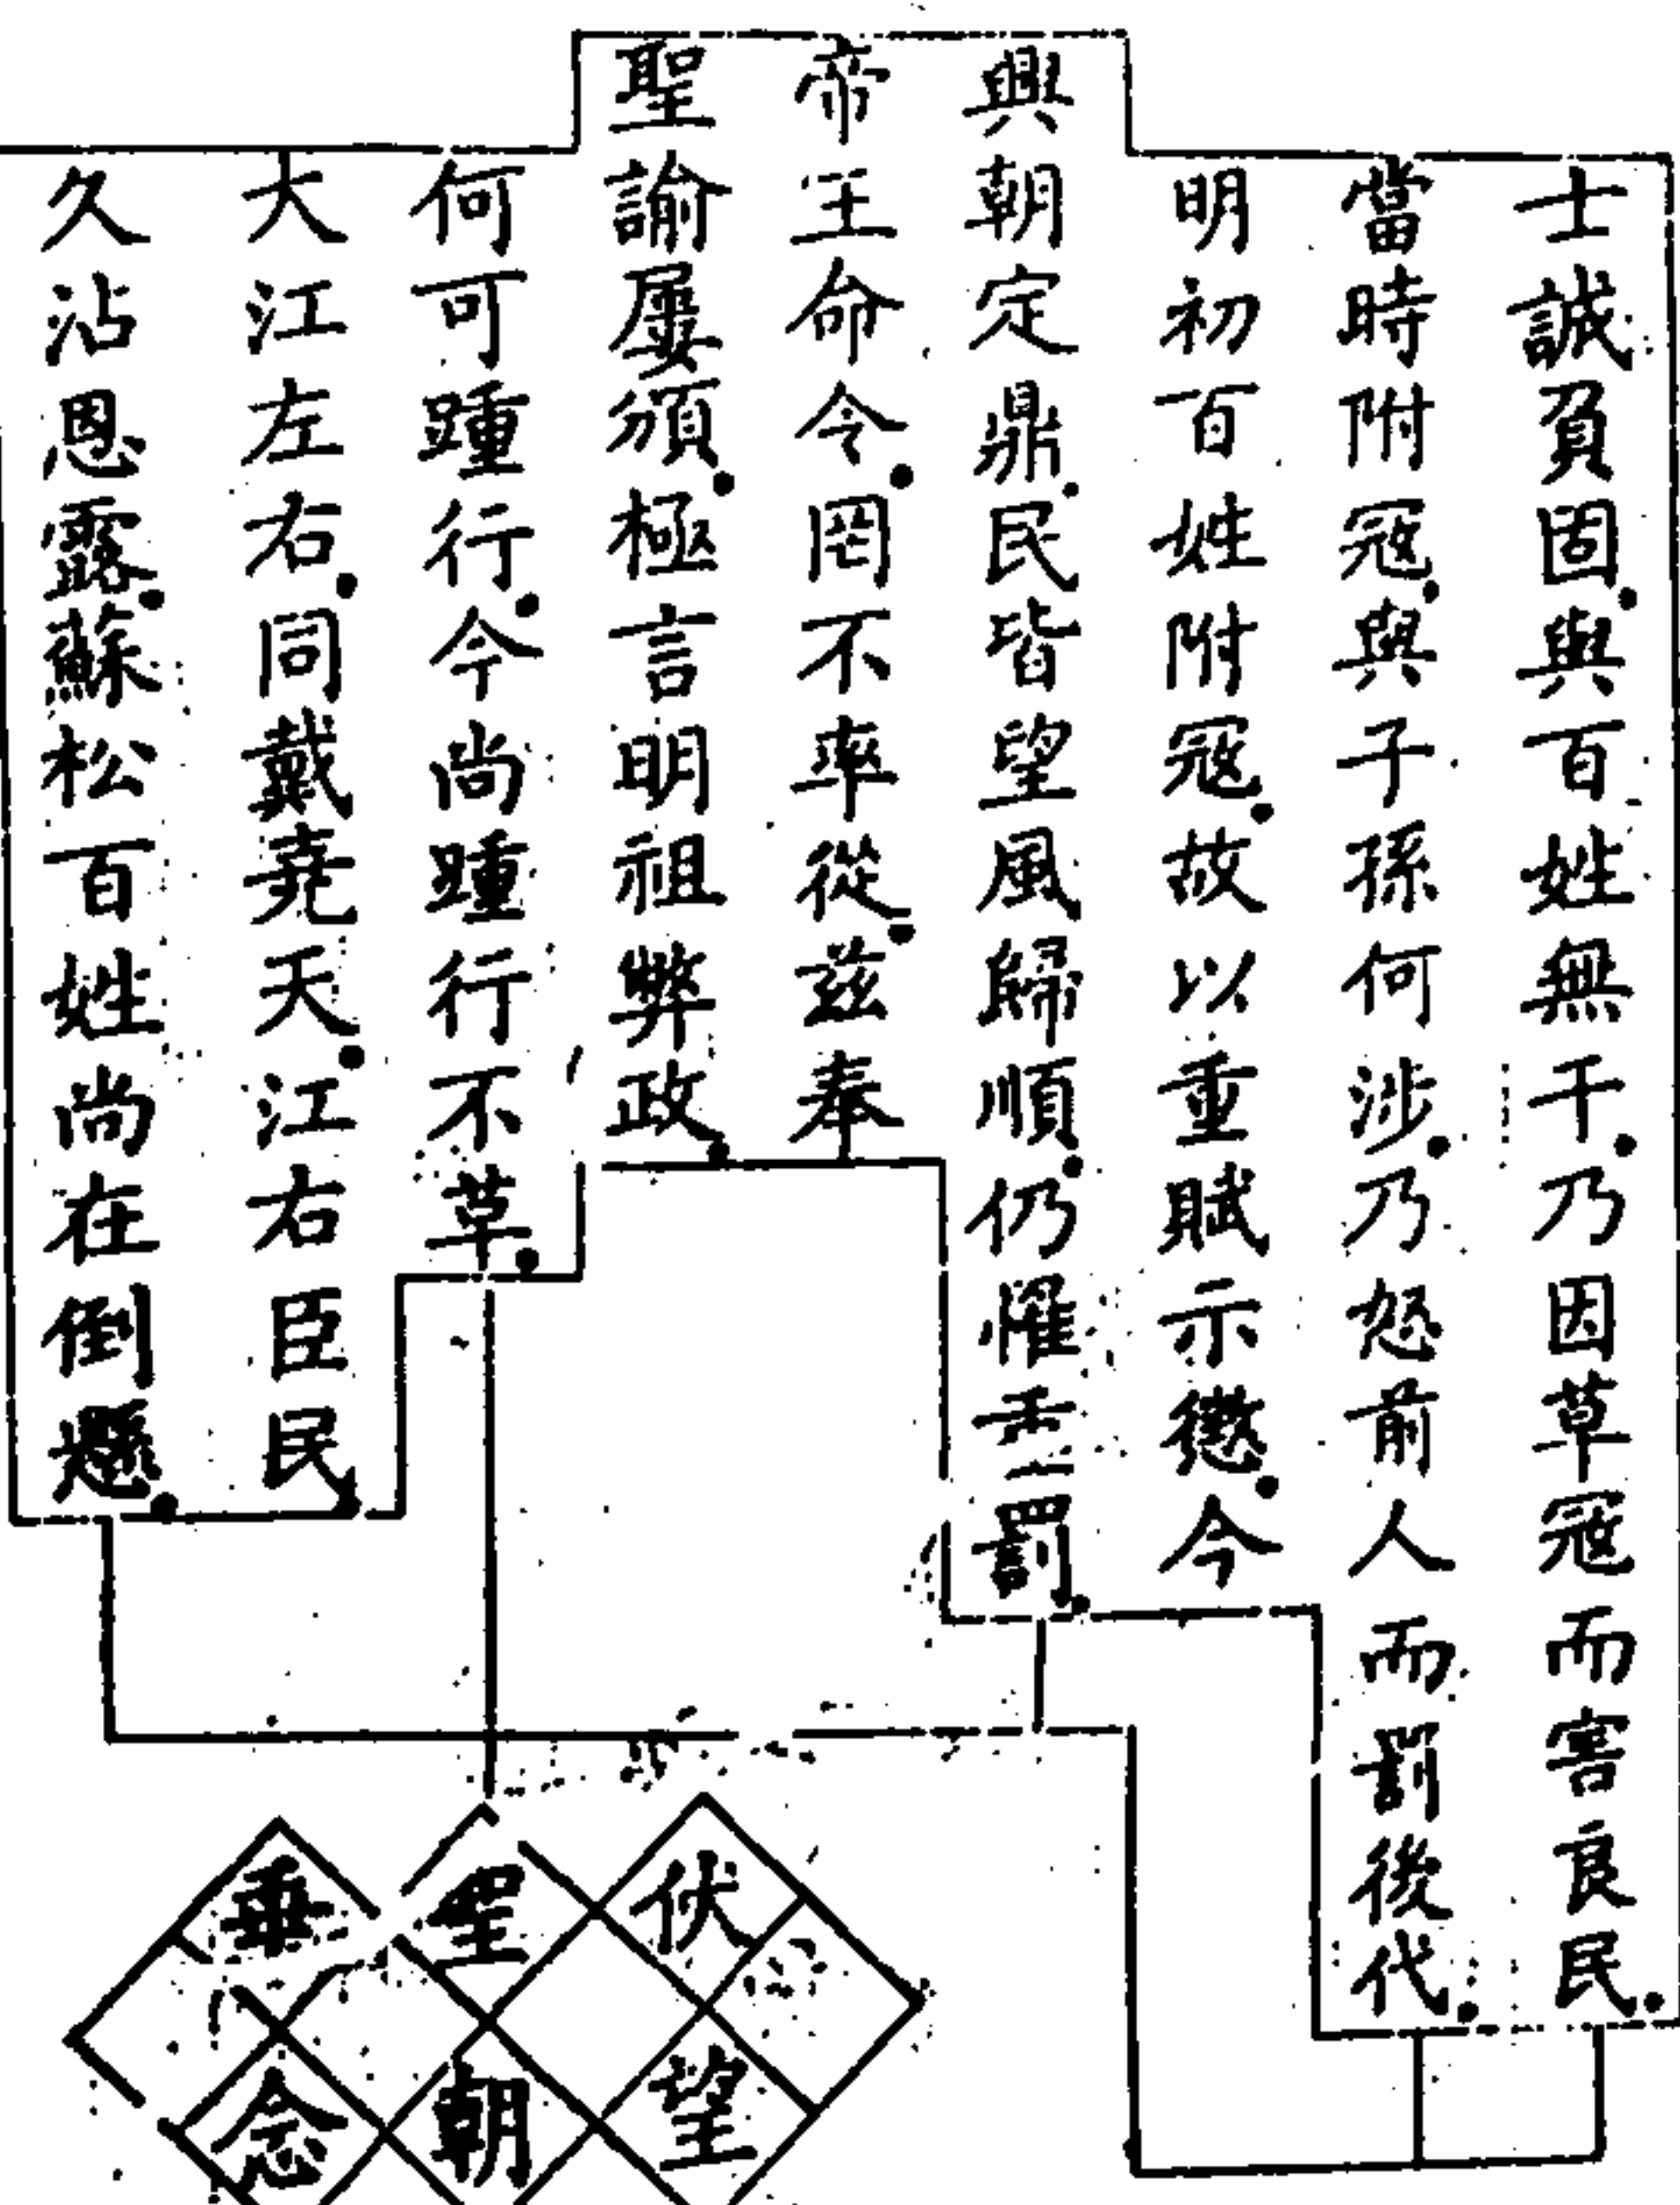 士誠負固與百姓無干乃因草冦而害良民
當時附冦與子孫何涉乃怒前人而罰後代
明初百姓附冦故以重賦示懲今
興朝定鼎民皆望風歸順仍罹重罰
帝王命令罔不率從茲奉
聖諭屢頒極言明祖弊政
何可踵行今尚踵行不革
大江左右同戴堯天江右臣民
久沾恩露蘇松百姓尚在倒懸
伏望
聖朝
垂念